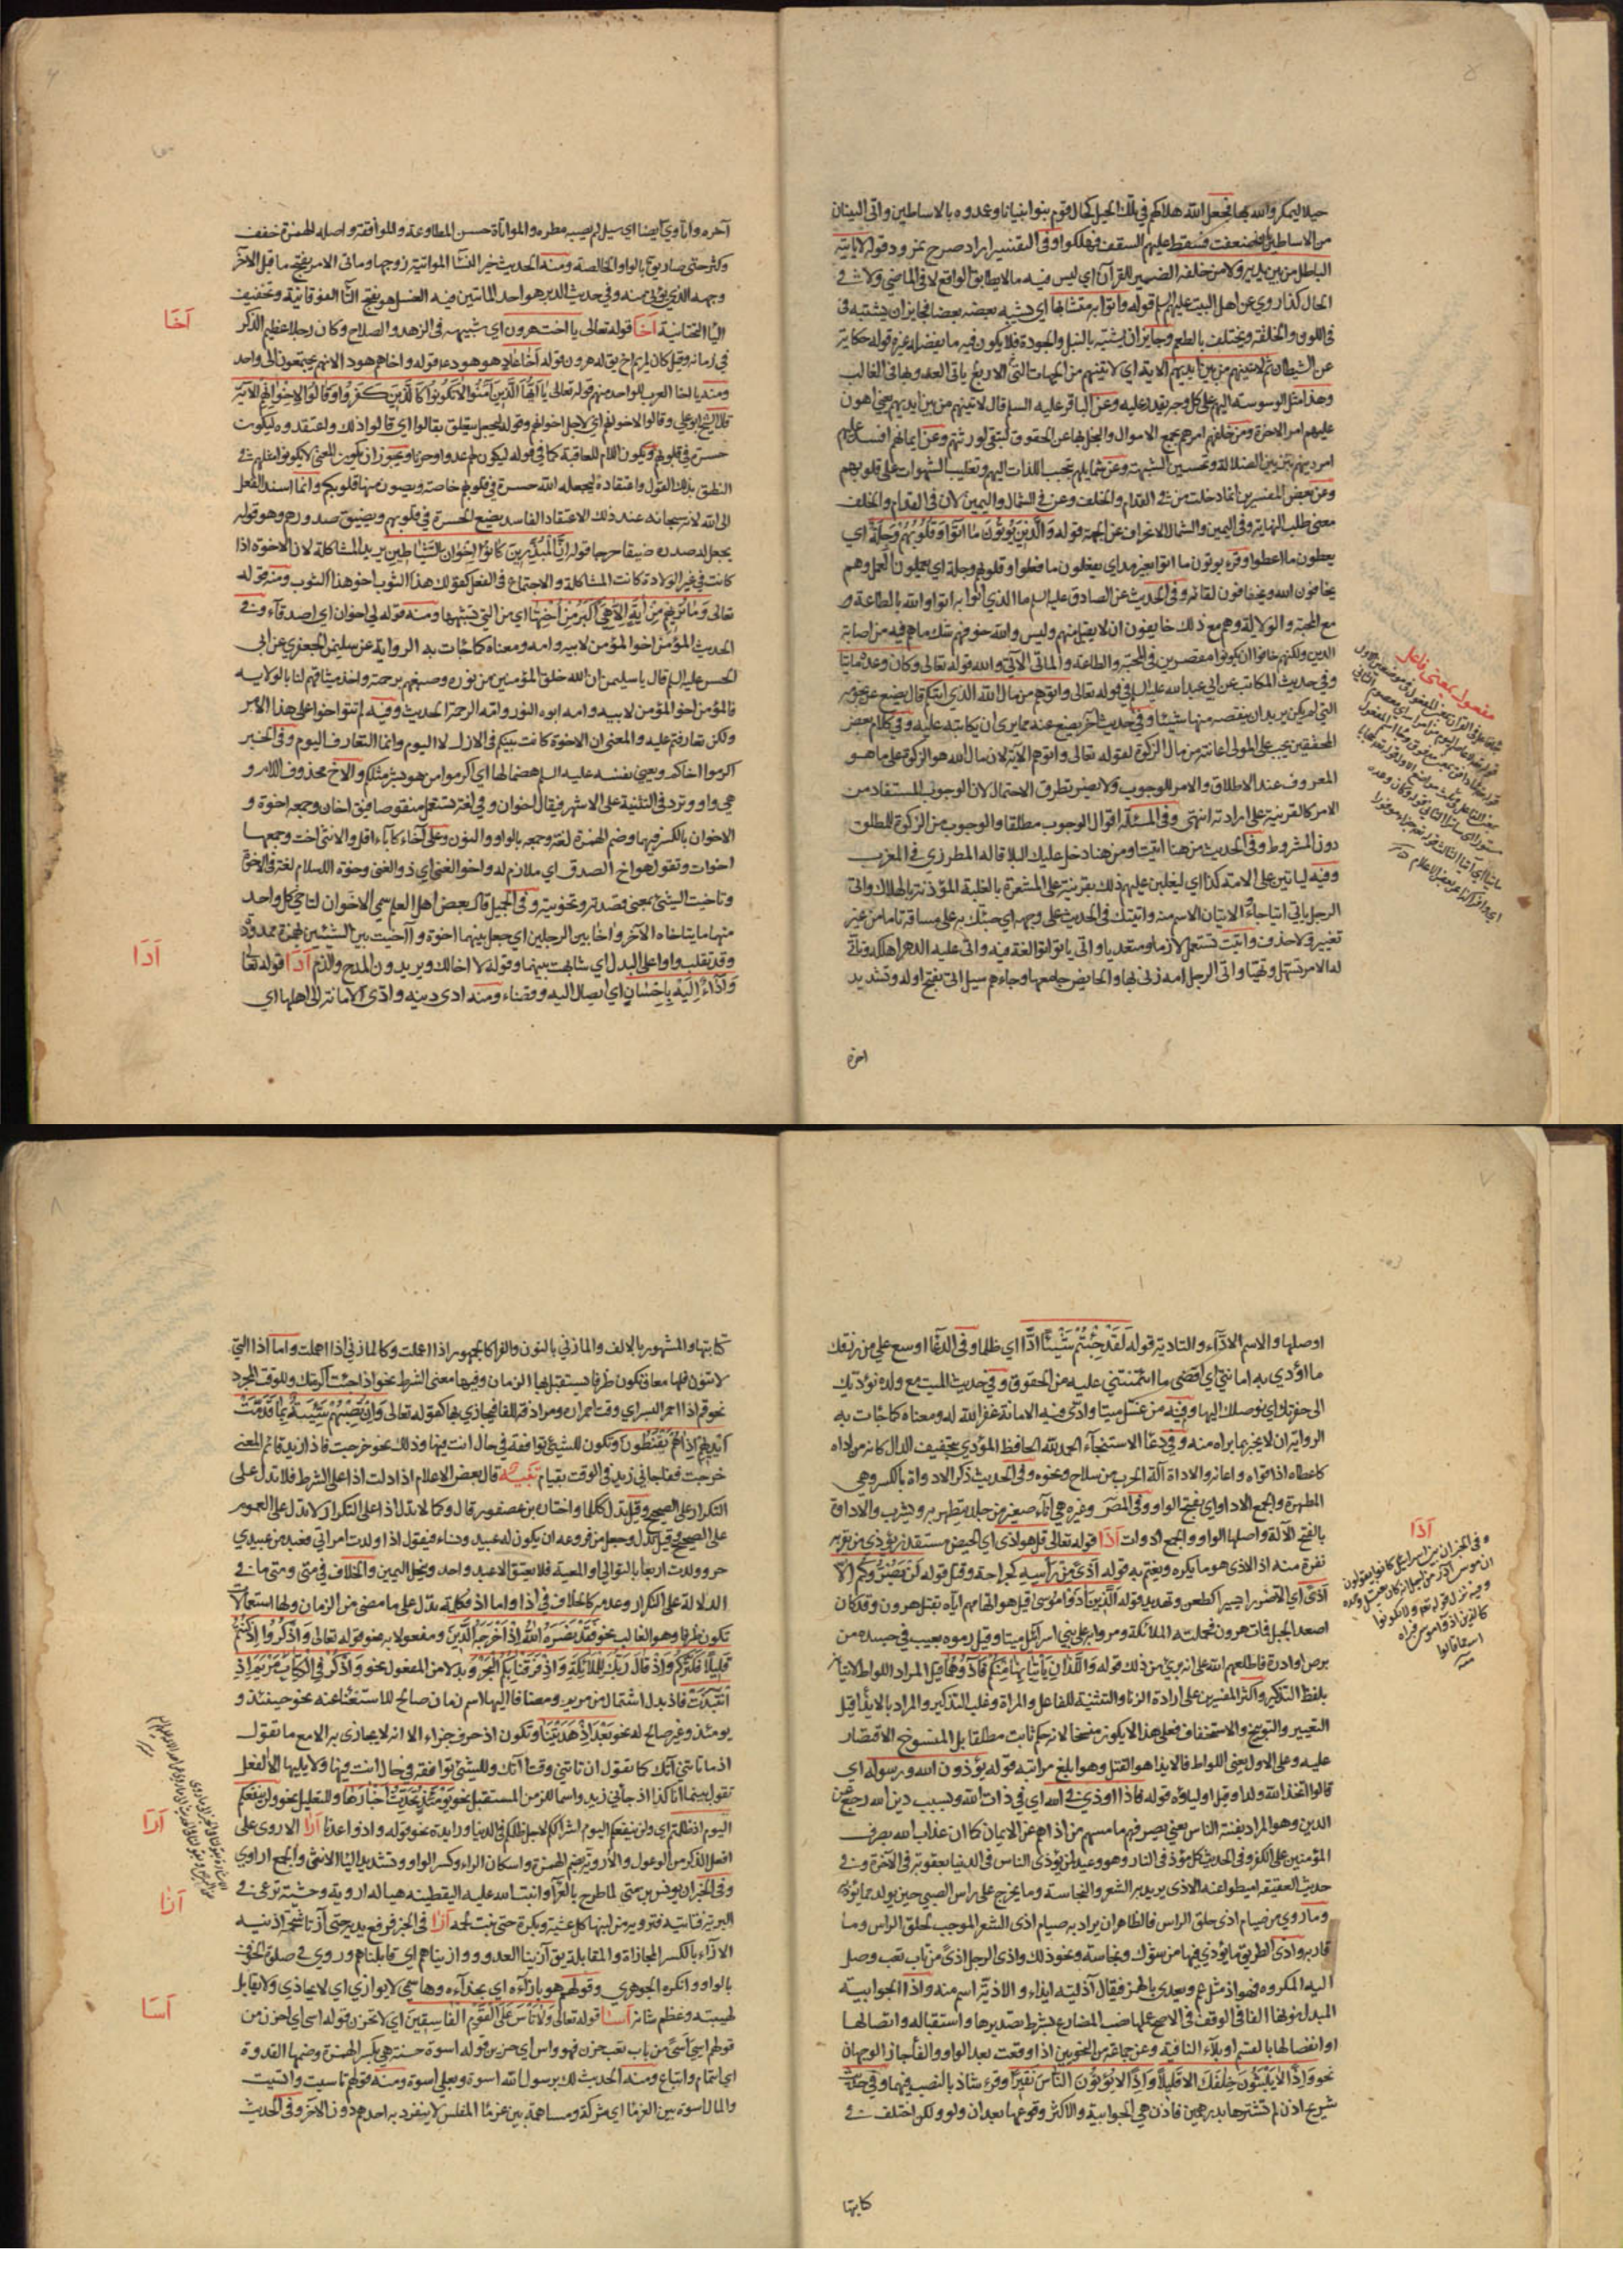 ٥
حيلا ليمكروا لله بها فجعل الله هلاكهم في تلك الحيل كحال قوم بنوا بنيانا وعمدوه بالاساطين واتى البنيان
من الاساطين بان ضعفت فسقط عليهم السقف فهلكوا وفي التفسير اراد صرح نمرود قوله لا ياتيه
الباطل من بين يديه ولا من خلفه الضمير للقرآن اي ليس فيه ما لا يطابق الواقع لا في الماضي ولا في
الحال كذا روي عن اهل البيت عليهم السلم قوله واتوا به متشابها اي يشبه بعضه بعضا فجايز ان يشتبه في
في اللون والخلقة ويختلف بالطعم وجايز ان يشتبه بالنبل والجودة فلا يكون فيه ما يفضله غيره قوله حكاية
عن الشيطان ثم لاتينهم من بين ايديهم الاية اي لاتينهم من الجهات التي الاربع ياتي العدو بها في الغالب
وهذا مثل الوسوسته اليهم على كل وجه يقدر عليه وعن الباقر عليه السلم قال لاتينهم من بين ايديهم يعني اهون
عليهم امر الاخرة ومن خلفهم امرهم بجمع الاموال والبخل بها عن الحقوق لتبقى لورثتهم وعن ايمانهم افسد عليهم
امر دينهم بتزيين الضلالة وتحسين الشبهة وعن شمايلهم بتحبيب اللذات اليهم وتغليب الشهوات على قلوبهم
وعن بعض المفسرين انما دخلت من في القدام والخلف وعن في الشمال واليمين لان في القدام والخلف
معنى طلب النهاية وفي اليمين والشمال الانحراف عن الجهة قوله والذين يؤتون ما اتوا وقلوبهم وجلة اي
يعطون ما اعطوا وقرء يوتون ما اتوا بغير مد اي يفعلون ما فعلوا وقلوبهم وجلة اي يعملون العمل وهم
يخافون الله ويخافون لقائه وفي الحديث عن الصادق عليه السلم ما الذي اتوا به اتوا والله بالطاعة و
مع المحبة والولاية وهم مع ذلك خايفون ان لا يقبل منهم وليس والله خوفهم شك ما هم فيه من اصابة
الدين ولكنهم خافوا ان يكونوا مقصرين في المحبة والطاعة والماتي الآتي والله قوله تعالى وكان وعده ماتيا
وفي حديث المكاتب عن ابي عبد الله عليه السلم في قوله تعالى واتوهم من مال الله الذي اتيكم قال يضع عن نجومه
التي لم يكن يريد ان ينقصه منها شيئا وفي حديث آخر يضع عنه مما يرى ان يكاتبه عليه وفي كلام بعض
المحققين يجب على المولى اعانته من مال الزكوة لقوله تعالى واتوهم الآية لان مال الله هو الزكوة على ما هو
المعروف عند الاطلاق والامر للوجوب ولا نضير بطرق الاحتمال لان الوجوب المستفاد من
الامر كالقرينة على ارادته انتهى وفي المسئلة اقوال الوجوب مطلقا والوجوب من الزكوة للمطلق
دون المشروط وفي الحديث من هنا اتيت اي من هنا دخل عليك البلا قاله المطرزي في المغرب
وفيه لياتين على الامة كذا اي ليغلبن عليهم ذلك بقرينة على المشعرة بالغلبة المؤذنة بالهلاك واتى
الرجل ياتي اتيا جاء والاتيان الاسم منه واتيتك في الحديث على وجهه اي جئتك به على مساقه تاما من غير
تغيير ولا حذف واتيت تستعمل لازما ومتعديا واتى ياتو اتوا لغة فيه واتى عليه الدهر اهلكه وتأتى
له الامر تسهل وتهيا واتى الرجل امه زنى بها والحايض جامعها وجاءهم سيل اتي بفتح اوله وتشديد
آخره
مفعول بمعنى فاعل
٦
آخره واتاوي ايضا اي سيل لم يصبه مطره والمواتاة حسن المطاوعة والموافقة واصله الهمزة خفف
وكثر حتى صار يق بالواو الخالصة ومنه الحديث خير النسا المواتية زوجها وماتى الامر بفتح ما قبل الآخر
وجهه الذي يؤتى منه وفي حديث الدبر هو احد الماتيين فيه الغسل هو بفتح التا الفوقانية وتخفيف
اليا التحتانية أخا قوله تعالى يا اخت هرون اي شبيهه في الزهد والصلاح وكان رجلا عظيم الذكر
أخا
في زمانه وقيل كان لمريم اخ يق له هرون قوله اخا عاد هو هود ع قوله واخاهم هودا لانهم يجتمعون الى واحد
ومنه يا اخا العرب للواحد منهم قوله تعالى يا ايها الذين آمنوا لا تكونوا كالذين كفروا وقالوا لاخوانهم الآية
قال الشيخ ابو علي وقالوا لاخوانهم اي لاجل اخوانهم وقوله ليجعل يتعلق بقالوا اي قالوا ذلك واعتقدوه ليكون
حسرة في قلوبهم ويكون اللام للعاقبة كما في قوله ليكون لهم عدوا وحزنا ويجوز ان يكون المعنى لا تكونوا مثلهم في
النطق بذلك القول واعتقاده ليجعله الله حسرة في قلوبهم خاصة ويصون منها قلوبكم وانما اسند الفعل
الى الله لانه سبحانه عند ذلك الاعتقاد الفاسد يضع الحسرة في قلوبهم ويضيق صدورهم وهو قوله
يجعل صدره ضيقا حرجا قوله ان المبذرين كانوا اخوان الشياطين يريد المشاكلة لان الاخوة اذا
كانت في غير الولادة كانت المشاكلة والاجتماع في الفعل كقولك هذا الثوب اخو هذا الثوب ومنه قوله
تعالى وما نريهم من آية الا هي اكبر من اختها اي من التي تشبهها ومنه قوله لي اخوان اي اصدقاء وفي
الحديث المؤمن اخو المؤمن لابيه وامه ومعناه كما جائت به الرواية عن سليمن الجعفري عن ابي
الحسن عليه السلم قال يا سليمن ان الله خلق المؤمنين من نوره وصبغهم برحمته واخذ ميثاقهم لنا بالولاية
فالمؤمن اخو المؤمن لابيه وامه ابوه النور وامه الرحمة الحديث وفيه لم تتواخوا على هذا الامر
ولكن تعارفتم عليه والمعنى ان الاخوة كانت بينكم في الازل لا اليوم وانما التعارف اليوم وفي الخبر
اكرموا اخاكم ويعني نفسه عليه السلم هضما لها اي اكرموا من هو بشر مثلكم والاخ محذوف اللام و
هي واو وترد في التثنية على الاشهر فيقال اخوان وفي لغة تستعمل منقوصا فيق اخان وجمعه اخوة و
الاخوان بالكسر فيهما وضم الهمزة لغة وجمعه بالواو والنون وعلى آخاء كآباء اقل والانثى اخت وجمعها
اخوات وتقول هو اخ الصدق اي ملازم له واخو الغنى اي ذو الغنى
وتاخيت الشيئ بمعنى قصدته وتخوبته وفي الجيل قال بعض اهل العلم سمي الاخوان لتاخي كل واحد
منهما ما يتاخاه الآخر واخا بين الرجلين اي جعل بينهما اخوة وآخيت بين الشيئين بهمزة ممدودة
وقد تقلب واوا على البدل اي شابهت بينهما وقوله لا اخا لك ويريدون المدح والذم أدا قوله تعا
أدا
وأداء اليه باحسان اي ايصال اليه وقضاء ومنه ادى دينه وادى الامانة الى اهلها اي
٧
اوصلها والاسم الاداء والتادية قوله لقد جئتم شيئا ادا اي ظلما وفي الدعا اوسع علي من رزقك
ما اؤدي به امانتي اي اقضي ما ائتمنتني عليه من الحقوق وفي حديث الميت مع ولده نؤديك
الى حفرتك اي نوصلك اليها وفيه من غسل ميتا وادى فيه الامانة غفر الله له ومعناه كما جائت به
الرواية ان لا يخبر بما يراه منه وفي دعا الاستنجاء الحمد لله الحافظ المؤدي بتخفيف الدال كانه من اداه
كاعطاه اذا قواه واعانه والاداة آلة الحرب من سلاح ونحوه وفي الحديث ذكر الاداوة بالكسر وهي
المطهرة والجمع الاداوى بفتح الواو وفي المص وغيره هي اناء صغير من جلد يتطهر به ويشرب والاداة
بالفتح الآلة واصلها الواو والجمع ادوات أذا قوله تعالى قل هو اذى اي الحيض مستقذر يؤذي من يقربه
أذا
نفرة منه اذ الاذى هو ما يكره ويغتم به قوله اذى من راسه كجراحة وقمل قوله لن يضروكم الا
اذى اي الا ضررا يسيرا كطعن وتهديد قوله الذين آذوا موسى قيل هو اتهامهم اياه بقتل هرون وقد كان
صعد الجبل فمات هرون فحملته الملائكة ومروا به على بني اسرائيل ميتا وقيل رموه بعيب في جسده من
برص او ادرة فاطلعهم الله على انه بري من ذلك قوله واللذان ياتيانها منكم فآذوهما قيل المراد اللواط لاتيانه
بلفظ التذكير واكثر المفسرين على ارادة الزنا والتثنية للفاعل والمراة وغلب التذكير والمراد بالايذا قيل
التعيير والتوبيخ والاستخفاف فعلى هذا لا يكون منسخا لانه حكم ثابت مطلقا بل المنسوخ الاقتصار
عليه وعلى الاول يعني اللواط فالايذا هو القتل وهو ابلغ مراتبه قوله يؤذون الله ورسوله اي
قالوا اتخذ الله ولدا وقيل اولياؤه قوله فاذا اوذي في الله اي في ذات الله وبسبب دين الله رجع عن
الدين وهو المراد بفتنة الناس يعني يصرفهم ما مسهم من اذاهم عن الايمان كما ان عذاب الله يصرف
المؤمنين على الكفر وفي الحديث كل مؤذ في النار وهو وعيد لمن يؤذي الناس في الدنيا بعقوبته في الآخرة وفي
حديث العقيقة اميطوا عنه الاذى يريد به الشعر والنجاسة وما يخرج على راس الصبي حين يولد
وما روي من صيام اذى حلق الراس فالظاهر ان يراد به صيام اذى الشعر الموجب لحلق الراس وما
قاربه واذى الطريق ما يؤذي فيها من شوك ونجاسة ونحو ذلك واذى الرجل اذى من باب تعب وصل
اليه المكروه فهو اذ مثل عم ويعدى بالهمز فيقال آذيته ايذاء والاذية اسم منه واذا الجوابية
المبدل نونها الفا في الوقف في الاصح عملها نصب المضارع بشرط تصديرها واستقباله واتصالها
او انفصالها بالقسم او بلاء النافية وعن جماعة من النحويين اذا وقعت بعد الواو والفا جاز الوجهان
نحو واذا لا يلبثون خلفك الا قليلا واذا لا يؤتون الناس نقيرا وقرء شاذ بالنصب فيهما وفي حديث
شريح اذن لم تشترها بدرهمين فاذن هي الجوابية والاكثر وقوعها بعد ان ولو ولكن اختلف في
كتابتها
٨
كتابتها والمشهور بالالف والمازني بالنون والفرا كالجمهور اذا اعملت وكالمازني اذا اهملت واما اذا التي
لا تنون فلها معان تكون ظرفا يستقبل بها الزمان وفيها معنى الشرط نحو اذا جئت اكرمتك وللوقت المجرد
نحو قم اذا احمر البسر اي وقت احمراره ومرادفة للفا فيجازى بها كقوله تعالى وان تصبهم سيئة بما قدمت
ايديهم اذا هم يقنطون وتكون للشيئ توافقه في حال انت فيها وذلك نحو خرجت فاذا زيد قائم المعنى
خرجت ففاجاني زيد في الوقت بقيام تنبيه قال بعض الاعلام اذا دلت اذا على الشرط فلا تدل على
التكرار على الصحيح وقيل تدل ككلما واختاره ابن عصفور قال وكما لا تدل اذا على التكرار لا تدل على العموم
على الصحيح وقيل تدل وجعل من فروعه ان يكون له عبيد ونساء فيقول اذا ولدت امراتي فعبد من عبيدي
حر وولدت اربعا بالتوالي والمعية فلا يعتق الا عبد واحد وينحل اليمين والخلاف في متى ومتى ما في
الدلالة على التكرار وعدمه كالخلاف في اذا واما اذ فكلمة تدل على ما مضى من الزمان ولها استعمالات
تكون ظرفا وهو الغالب نحو فقد نصره الله اذ اخرجه الذين ومفعولا به نحو قوله تعالى واذكروا اذ كنتم
قليلا فكثركم واذ قال ربك للملائكة واذ فرقنا بكم البحر وبدلا من المفعول نحو واذكر في الكتاب مريم اذ
انتبذت فاذ بدل اشتمال من مريم ومضافا اليها اسم زمان صالح للاستغناء عنه نحو حينئذ و
يومئذ وغير صالح له نحو بعد اذ هديتنا وتكون اذ حرف جزاء الا انه لا يجازى به الا مع ما تقول
اذما تاتني آتك كما تقول ان تاتني وقتا آتك وللشيئ توافقه في حال انت فيها ولا يليها الا الفعل
تقول بينما انا كذا اذ جاءني زيد واسما للزمن المستقبل نحو يومئذ تحدث اخبارها وللتعليل نحو ولن ينفعكم
اليوم اذ ظلمتم اي ولن ينفعكم اليوم اشراككم لاجل ظلمكم في الدنيا وزايدة نحو قوله واذ واعدنا أرا الاروى على
أرا
افعل الذكر من الوعول والاروية بضم الهمزة واسكان الراء وكسر الواو وتشديد اليا الانثى والجمع اراوي
وفي الخبر ان يونس بن متى لما طرح بالعراء وانبت الله عليه اليقطينة هيا له اروية وحشية ترعى في
أزا
البرية فتاتيه فترويه من لبنها كل عشية وبكرة حتى نبت لحمه أزا في الخبر فرفع يديه حتى آزتا شحمة اذنيه
الازاء بالكسر المحاذاة والمقابلة يق آزينا العدو ووازيناهم اي قابلناهم وروي في صلوة الخوف
بالواو وانكره الجوهري وقولهم هو بازاءه اي بحذاءه وهما سمي لا يوازي اي لا يحاذي ولا يقابل
لهيبته وعظم شانه أسا قوله تعالى ولا تاس على القوم الفاسقين اي لا تحزن قوله اسى اي احزن من
أسا
قولهم اسي اسى من باب تعب حزن فهو واس اي حزين قوله اسوة حسنة هي بكسر الهمزة وضمها القدوة
اي ائتمام واتباع ومنه الحديث لك برسول الله اسوة وبعلي اسوة ومنه قولهم تاسيت وائتسيت
والمال اسوة بين الغرما اي شركة ومساهمة بين غرما المفلس لا ينفرد به احدهم دون الآخر وفي الحديث